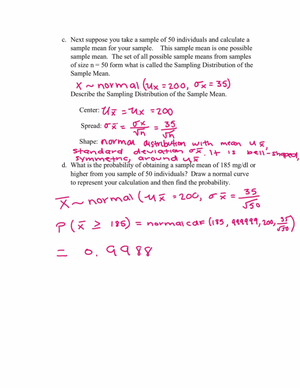 c. Next suppose you take a sample of 50 individuals and calculate a
sample mean for your sample. This sample mean is one possible
sample mean. The set of all possible sample means from samples
of size n = 50 form what is called the Sampling Distribution of the
Sample Mean.
X ~ normal (μx = 200, σx = 35)
Describe the Sampling Distribution of the Sample Mean.
Center: μx̄ = μx = 200
Spread: σx̄ = σx/√n = 35/√n
Shape: normal distribution with mean μx̄,
standard deviation σx̄. It is bell-shaped,
symmetric, around μx̄
d. What is the probability of obtaining a sample mean of 185 mg/dl or
higher from you sample of 50 individuals? Draw a normal curve
to represent your calculation and then find the probability.
X̄ ~ normal (μx̄ = 200, σx̄ = 35/√50
P(x̄ ≥ 185) = normalcdf (185, 999999, 200, 35/√50)
= 0.9988